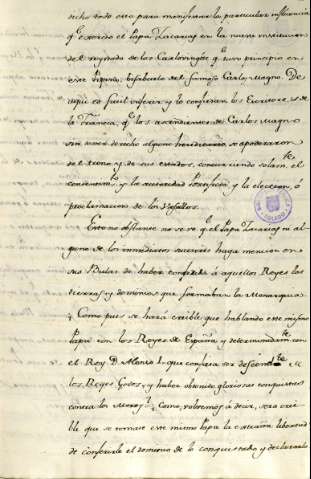 dicho todo esto para manifestar la particular influencia
qe exercio el Papa Zacarias en la nueva institucion
del reynado de las Carlovingios qe tuvo principio en
este Pipino, Bisabuelo del famoso Carlos Magno. De
aqui es facil inferir y lo confiesan los Escritores de
la Francia, qe los ascendientes de Carlos Magno
sin haver derecho alguno hereditario se apoderaron
del trono y de sus estados, concurriendo solamte el
consentimto y la autoridad Pontificia y la eleccion, ó
proclamacion de los Vasallos.
Esto no obstante no se ve qe el Papa Zacarias ni al-
guno de los inmediatos succesores haga mencion en
sus Bulas de haber conferido á aquellos Reyes las
tierras y dominios que formaban la Monarquia
Como pues se hará creible que hablando este mismo
Papa con los Reyes de España y determinadamte con
el Rey Dn Alonso 1. que confiesa ser descendte de
los Reyes Godos, y haber obtenido gloriosas conquistas
contra los Moros Como, volvemos á decir, sera crei-
ble que se tomase este mismo Papa la extraña libertad
de conferirle el dominio de lo conquistado y declararlo